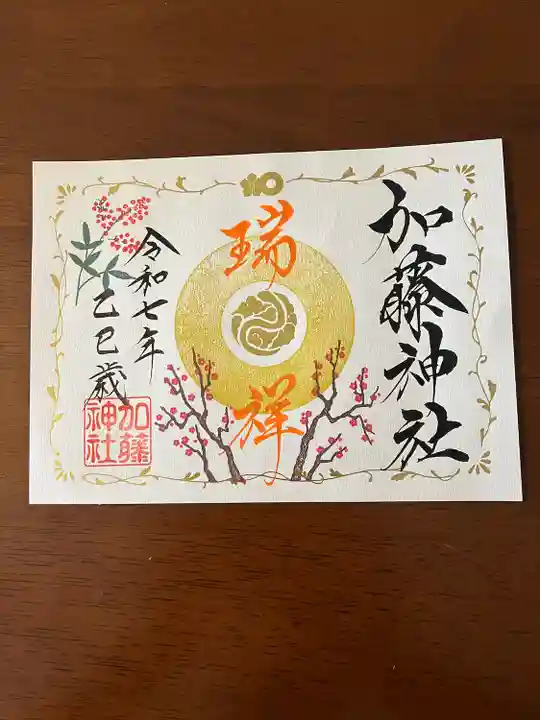 加藤神社
瑞祥
令和七年
乙巳歳
加藤
神社